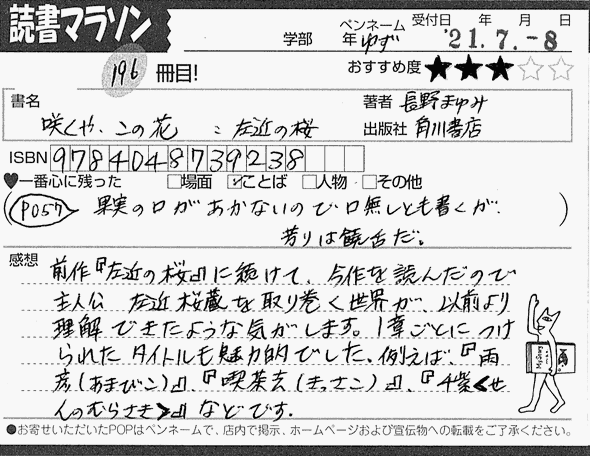 読書マラソン
学部 年 ペンネーム ゆず 受付日 年 月 日
'21.7.-8
196 冊目!
おすすめ度 ★★★☆☆
書名 咲くや、この花 : 左近の桜
著者 長野まゆみ
出版社 角川書店
ISBN 9784048739238
♥一番心に残った □場面 ☑ことば □人物 □その他
(P057) 果実の口があかないので口無しとも書くが、
芳りは饒舌だ。
感想
前作『左近の桜』に続けて、今作を読んだので
主人公 左近桜蔵を取り巻く世界が、以前より
理解できたような気がします。1章ごとにつけ
られたタイトルも魅力的でした。例えば、『雨
彦(あまびこ)』、『喫茶去(きっさこ)』、『千紫<せ
んのむらさき>』などです.
●お寄せいただいたPOPはペンネームで、店内で掲示、ホームページおよび宣伝物への転載をご了承ください。